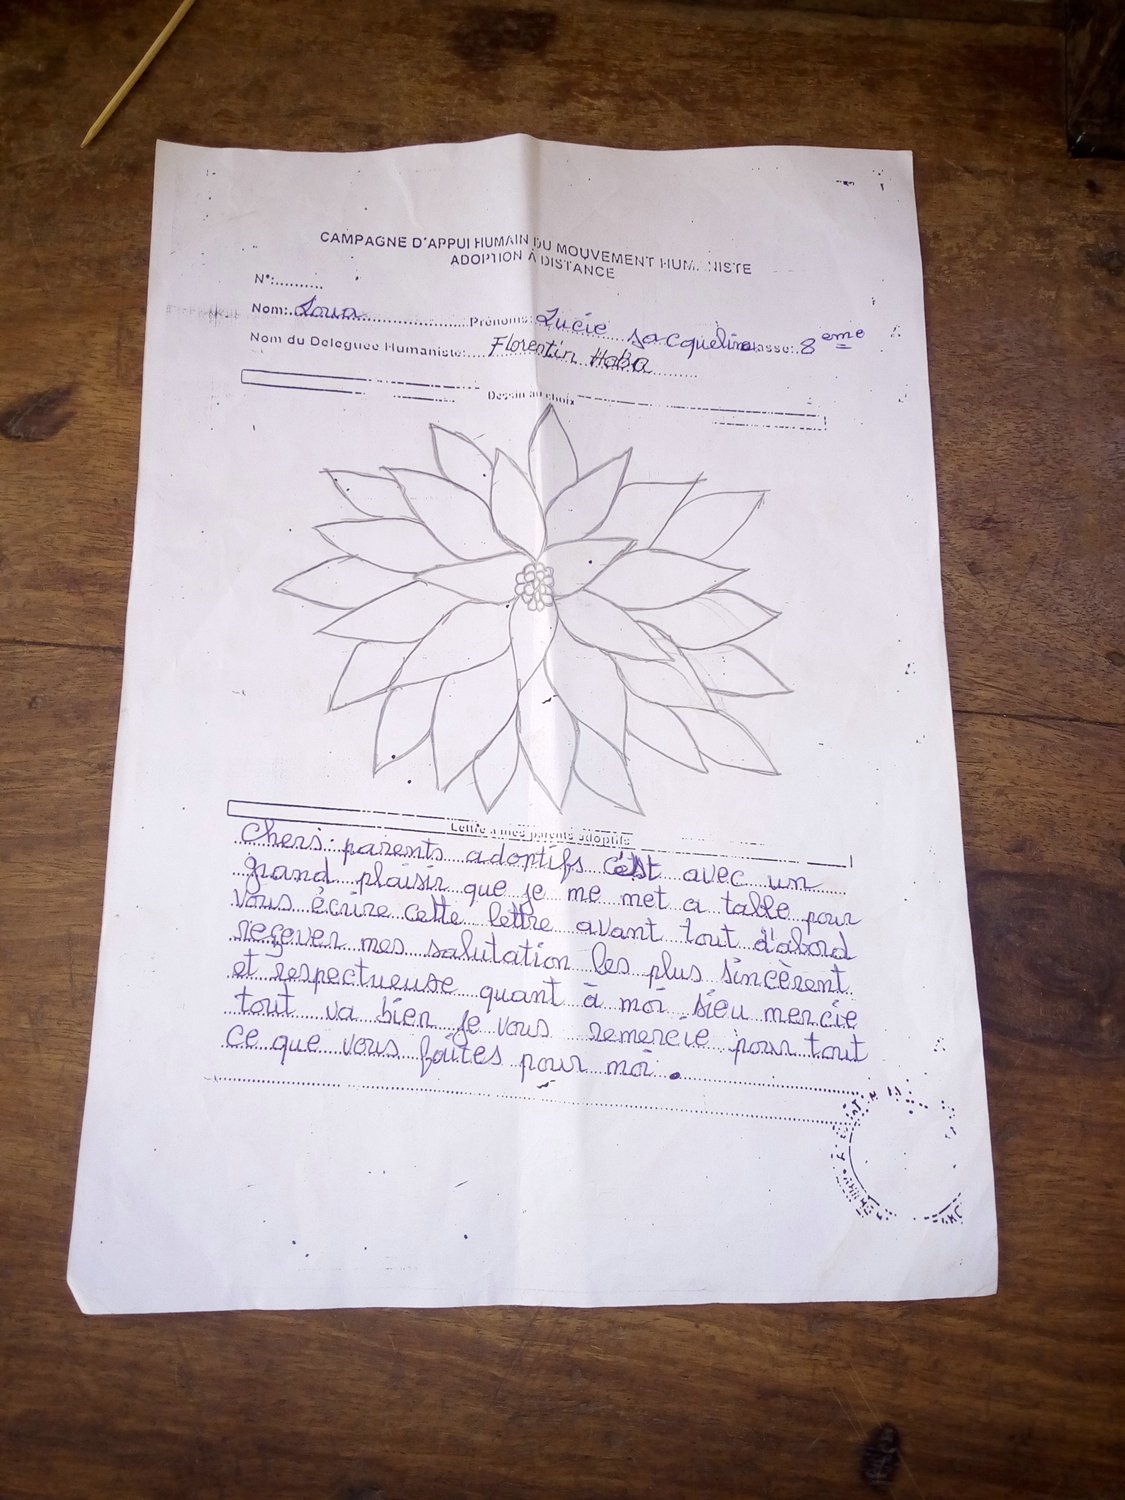 CAMPAGNE D'APPUI HUMAIN DU MOUVEMENT HUMANISTE
ADOPTION À DISTANCE
N°:..........
Nom: Loua Prénoms: Lucie Jacqueline classe: 8 eme
Nom du Deleguée Humaniste: Florentin Haba
Dessin au choix
Lettre à mes parents adoptifs
Chers parents adoptifs c'est avec un
grand plaisir que je me met a table pour
vous écrire cette lettre avant tout d'abord
reçever mes salutation les plus sincèrent
et respectueuse quant à moi Dieu mercie
tout va bien je vous remercie pour tout
ce que vous faites pour moi.